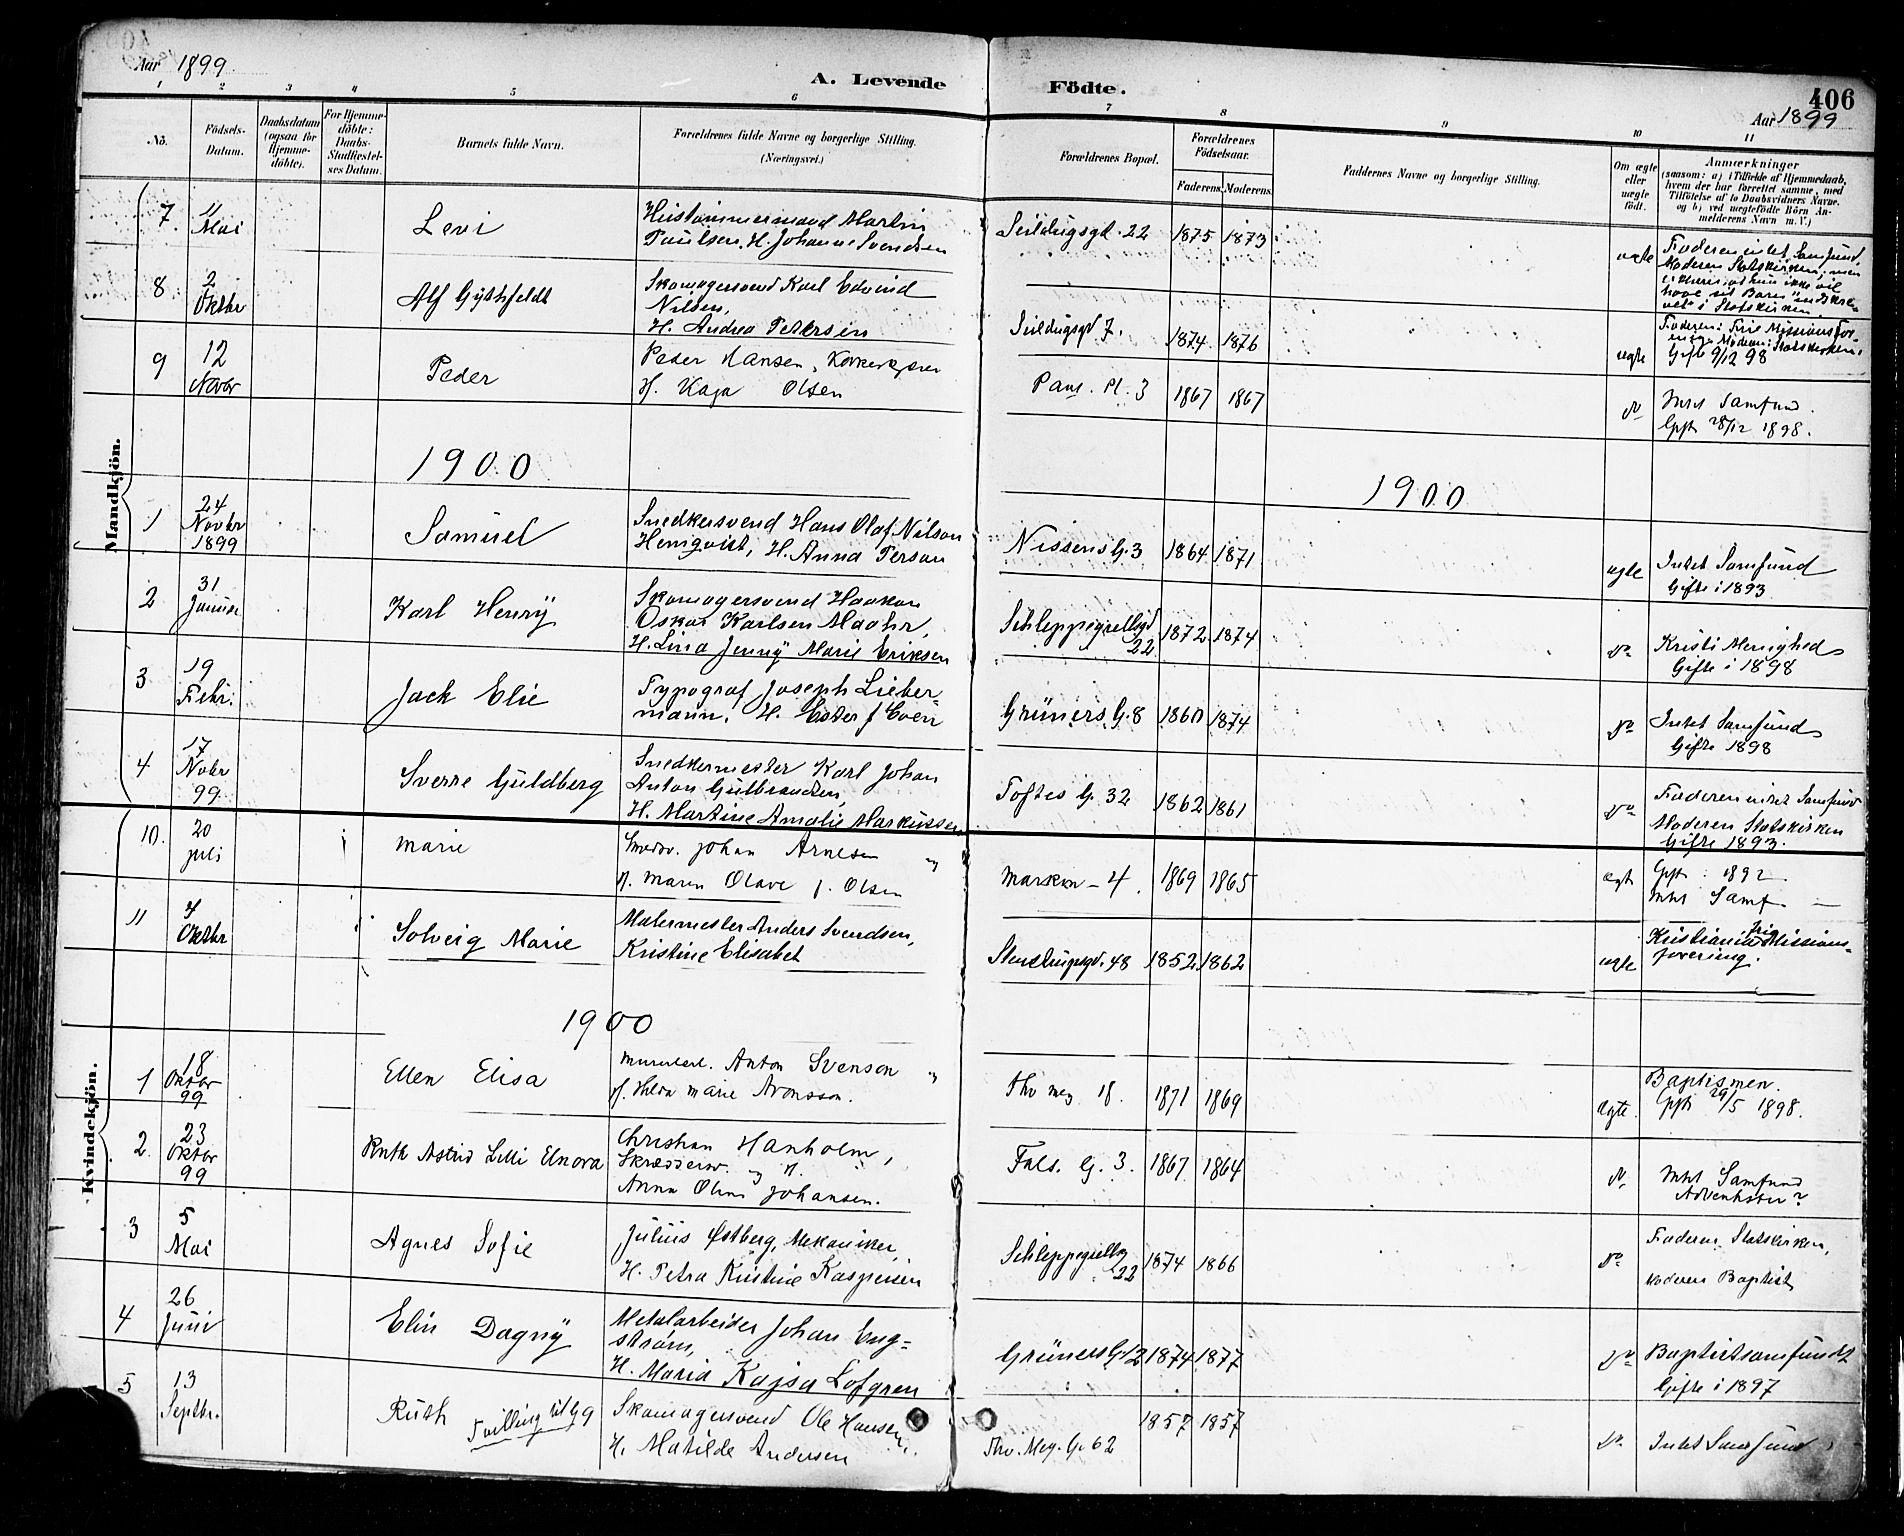 Aar 1899
A. Levende Födte.
406
Aar 1899
1 2 3 4 5 6 7 8 9 10 11
No.
Födsels-Datum.
Daabsdatum (ogsaa for Hjemmedöbte).
For Hjemmedöbte: Daabs-Stadfæstelses Datum.
Barnets fulde Navn.
Forældrenes fulde Navne og borgerlige Stilling. (Næringsvei.)
Forældrenes Bopæl.
Forældrenes Födselsaar.
Faderens. Moderens.
Faddernes Navne og borgerlige Stilling.
Om ægte eller uægte födt.
Anmærkninger
(saasom: a) i Tilfælde af Hjemmedaab, hvem der har forrettet samme, med Tilföielse af to Daabsvidners Navne. og b) ved uægtefödte Börn Anmelderens Navn m. V.)
Mandkjön.
7. 11 Mai Levi
Hustømmermand Martin
Paulsen, H. Johanne Svendsen
Seildugsgd. 22 1875 1873 ægte
Faderen intet Samfund,
Moderen Statskirken, men
vil
i Statskirken
8 2 Oktbr Alf Gythfeldt
Skomagersvend Karl Edvind
Nilsen,
H. Andrea Petersen
Seildugsgd 7. 1874 1876 ægte
Faderen: Frie Missionsfor-
ening Moderen: Statskirken.
Gift 9/12 98
9 12 Novbr Peder
Peder Hansen,
H. Kaja Olsen
Paul. Pl. 3 1867 1867 do
Intet Samfund.
Gift 28/12 1898.
1900
1900
1 24 Novbr 1899 Samuel
Snedkersvend Hans Olaf Nilson
Hemqvist, H. Anna Person
Nissens G. 3 1864 1871 ægte
Intet Samfund
Gifte i 1893
2 31 Januar Karl Henry
Skomagersvend Haakon
Oskar Karlsen Moehr,
H. Lina Jenny Marie Eriksen
Schleppegrellsgd 22 1872 1874 do
Kristi Menighed
Gifte i 1898
3 19 Febr. Jack Elie
Typograf Joseph Lieber
mann, H. Ester f. Even
Grüners G. 8 1860 1874 do
Intet Samfund
Gifte 1898
4 17 Nobr 99 Sverre Guldberg
Snedkermester Karl Johan
Anton Gulbrandsen,
H. Martine Amalie Markussen
Toftes G. 32 1862 1861 do
Faderen intet Samfund
Moderen Statskirken
Gifte 1893.
Kvindekjön.
10. 20 juli Marie
Smedsv. Johan Arnesen og
H. Maren Olave f. Olsen
Markvn - 4. 1869 1865 ægt
Gift : 1892
Intet Samf. —
11 4 Oktbr Solveig Marie
Malermester Anders Svendsen,
Kristine Elisabet
Stenstrupsgd. 48 1852 1862 ægte
Kristiania frie Missions-
forening.
1900
1 18 Oktbr 99 Ellen Elisa
Murarbeid. Anton Svenson og
H. Hilda Marie Aronsson.
Thv Mey 18. 1871 1869 Ægte.
Baptismen.
Gift 29/5 1898.
2. 23 Oktbr 99 Ruth Astrid Lilli Elnora
Christian Hanholm,
Skrædderm. og H.
Anna Oline Johansen.
Fals. G. 3. 1867 1864 do
Intet Samfund
Adventister?
3 5 Mai Agnes Sofie
Julius Østberg, Mekaniker,
H. Petra Kristine Kaspersen
Schleppegrellsg 22 1874 1866 do
Faderen Statskirken,
Moderen Baptist
4 26 Juni Elin Dagny
Metalarbeider Johan Eng-
strøm,
H. Maria Kajsa Lofgren
Grüners G. 12 1874 1877 do
Baptistsamfundet
Gifte i 1897
5 13 Septbr. Ruth Tvilling til
Skomagersvend Ole Hansen,
H. Matilde Andersen
Thv. Mey. G. 62 1857 1857 do
Intet Samfund